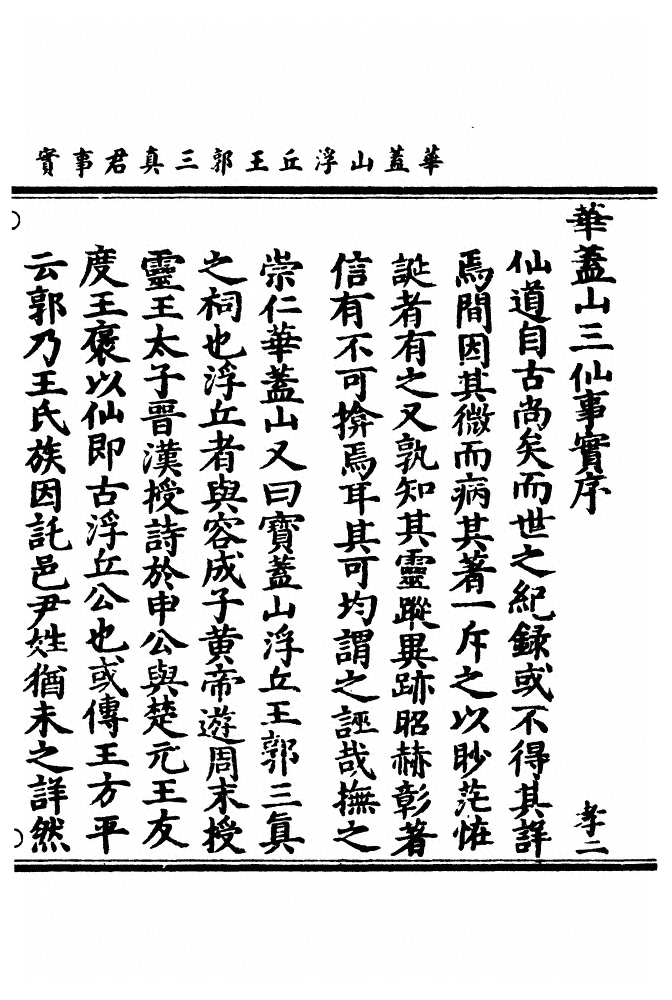 華蓋山浮丘王郭三真君事實
華蓋山三仙事實序
孝二
仙道自古尚矣而世之紀録或不得其詳
焉間因其微而病其著一斥之以眇茫恠
誕者有之又孰知其靈蹤異跡昭赫彰著
信有不可揜焉耳其可均謂之誣哉撫之
崇仁華蓋山又曰寶蓋山浮丘王郭三真
之祠也浮丘者與容成子黄帝遊周末授
靈王太子晉漢授詩於申公與楚元王友
度王褒以仙即古浮丘公也或傳王方平
云郭乃王氏族因託邑尹姓猶未之詳然